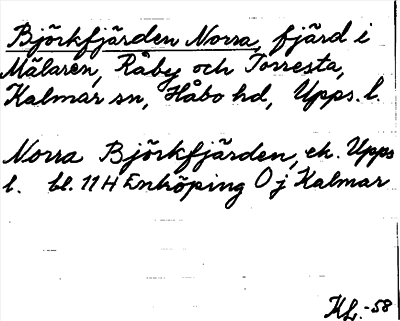 Björkfjärden Norra, fjärd i
Mälaren, Råby och Torresta,
Kalmar sn, Håbo hd, Upps. l.
Norra Björkfjärden, ek. Upps
l. bl. 114 Enköping O j Kalmar
KL.-58